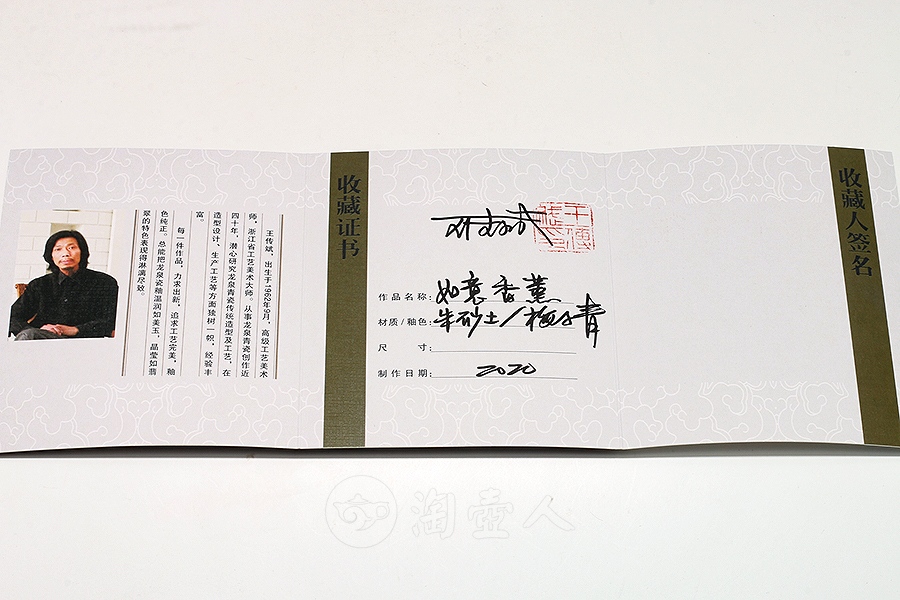 王传斌，出生于1962年9月，高级工艺美术
师，浙江省工艺美术大师。从事龙泉青瓷创作近
四十年，潜心研究龙泉青瓷传统造型及工艺，在
造型设计、生产工艺等方面独树一帜，经验丰
富。
每一件作品，力求出新，追求工艺完美，釉
色纯正。总能把龙泉瓷釉温润如美玉，晶莹如翡
翠的特色表现得淋漓尽致。
收藏证书
作品名称：如意香薰
材质/釉色：朱砂土/梅子青
尺寸：
制作日期：2020
收藏人签名
淘壶人